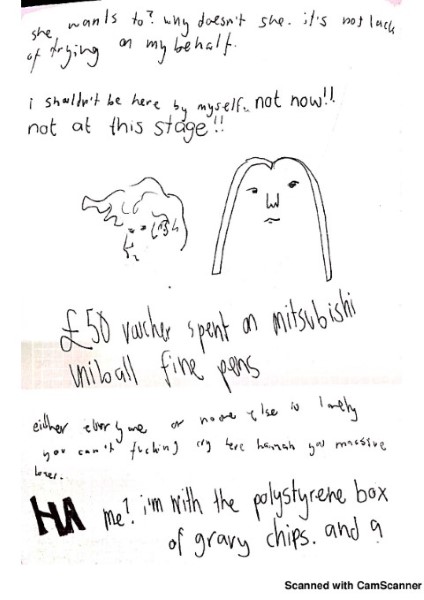 she wants to? why doesn't she. it's not lack
of trying on my behalf.
i shouldn't be here by myself. not now!!
not at this stage!!
£50 voucher spent on mitsubishi
uniball fine pens
either everyone or no one else is lonely
you can't fucking cry here hannah you massive
loser.
HA me? i'm with the polystyrene box
of gravy chips. and a
Scanned with CamScanner